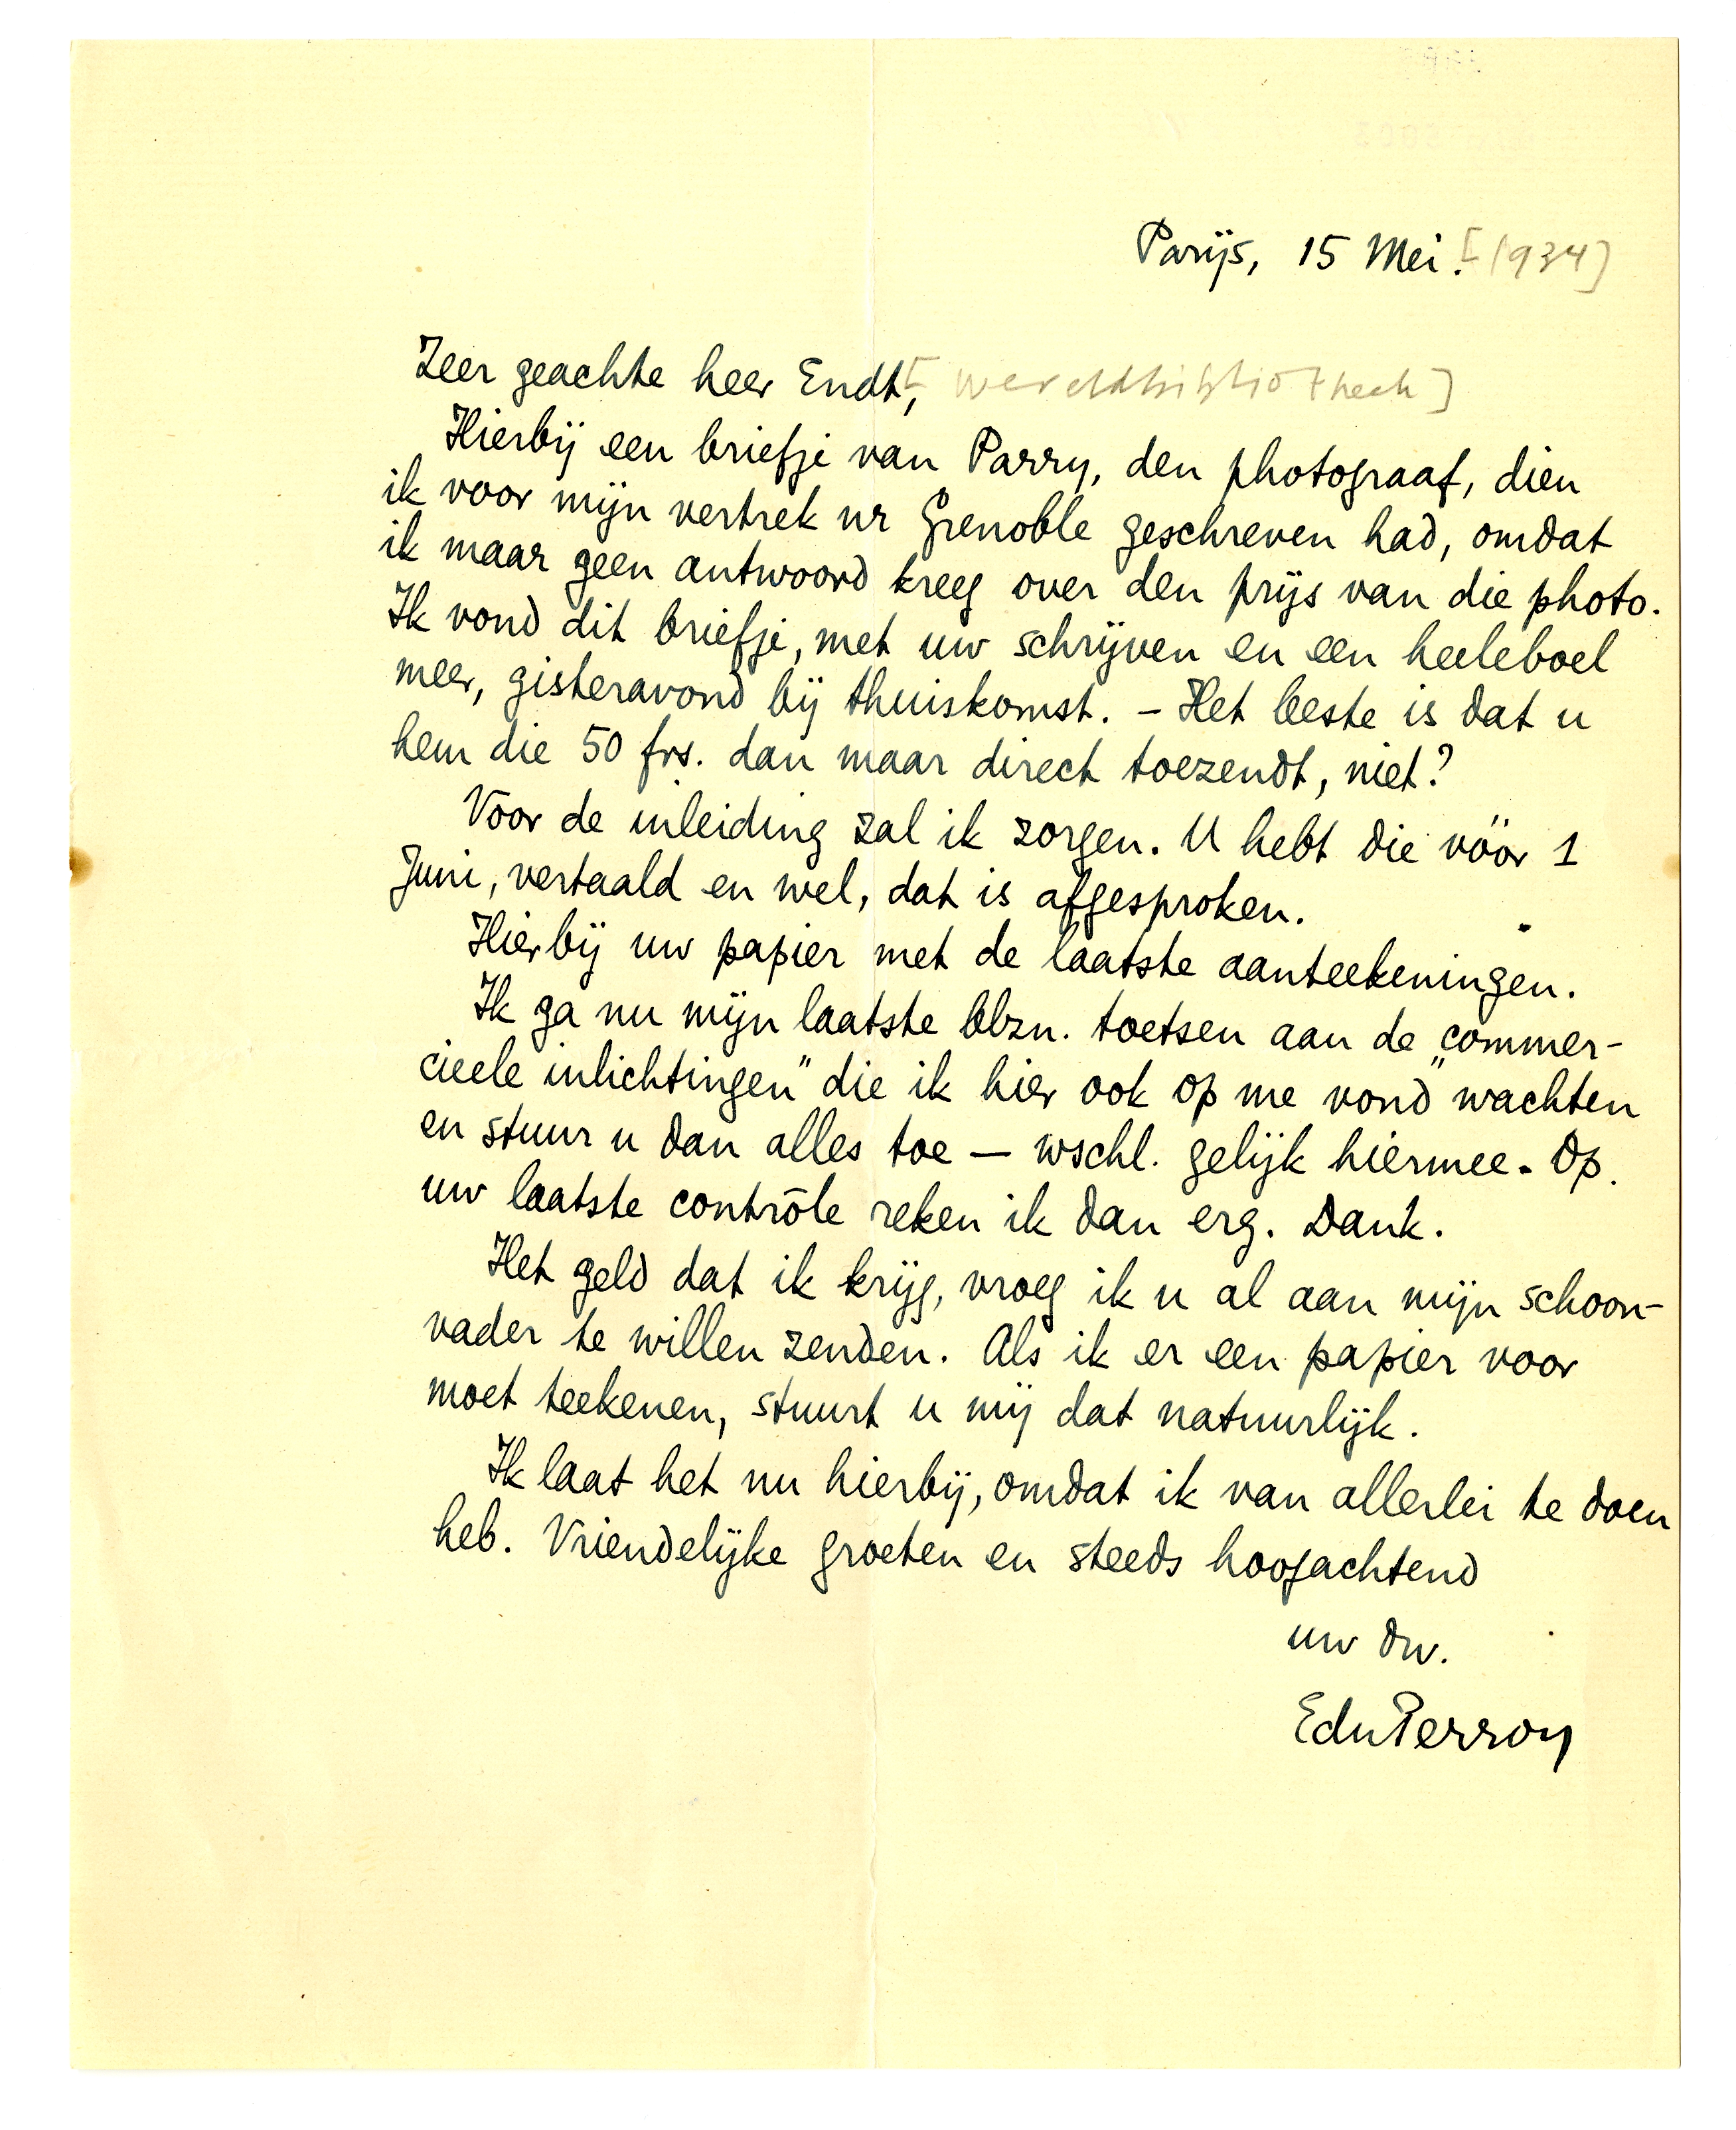 Parijs, 15 Mei. [1934]
Zeer geachte heer Endt, [Wereldbibliotheek]
Hierbij een briefje van Parry, den photograaf, dien
ik voor mijn vertrek nr Grenoble geschreven had, omdat
ik maar geen antwoord kreeg over den prijs van die photo.
Ik vond dit briefje, met uw schrijven en een heeleboel
meer, gisteravond bij thuiskomst. – Het beste is dat u
hem die 50 frs. dan maar direct toezendt, niet?
Voor de inleiding zal ik zorgen. U hebt die vóór 1
Juni, vertaald en wel, dat is afgesproken.
Hierbij uw papier met de laatste aanteekeningen.
Ik ga nu mijn laatste blzn. toetsen aan de „commer-
cieele inlichtingen" die ik hier ook op me vond wachten
en stuur u dan alles toe — wschl. gelijk hiermee. Op
uw laatste contrôle reken ik dan erg. Dank.
Het geld dat ik krijg, vroeg ik u al aan mijn schoon-
vader te willen zenden. Als ik er een papier voor
moet teekenen, stuurt u mij dat natuurlijk.
Ik laat het nu hierbij, omdat ik van allerlei te doen
heb. Vriendelijke groeten en steeds hoogachtend
uw dw.
EduPerron